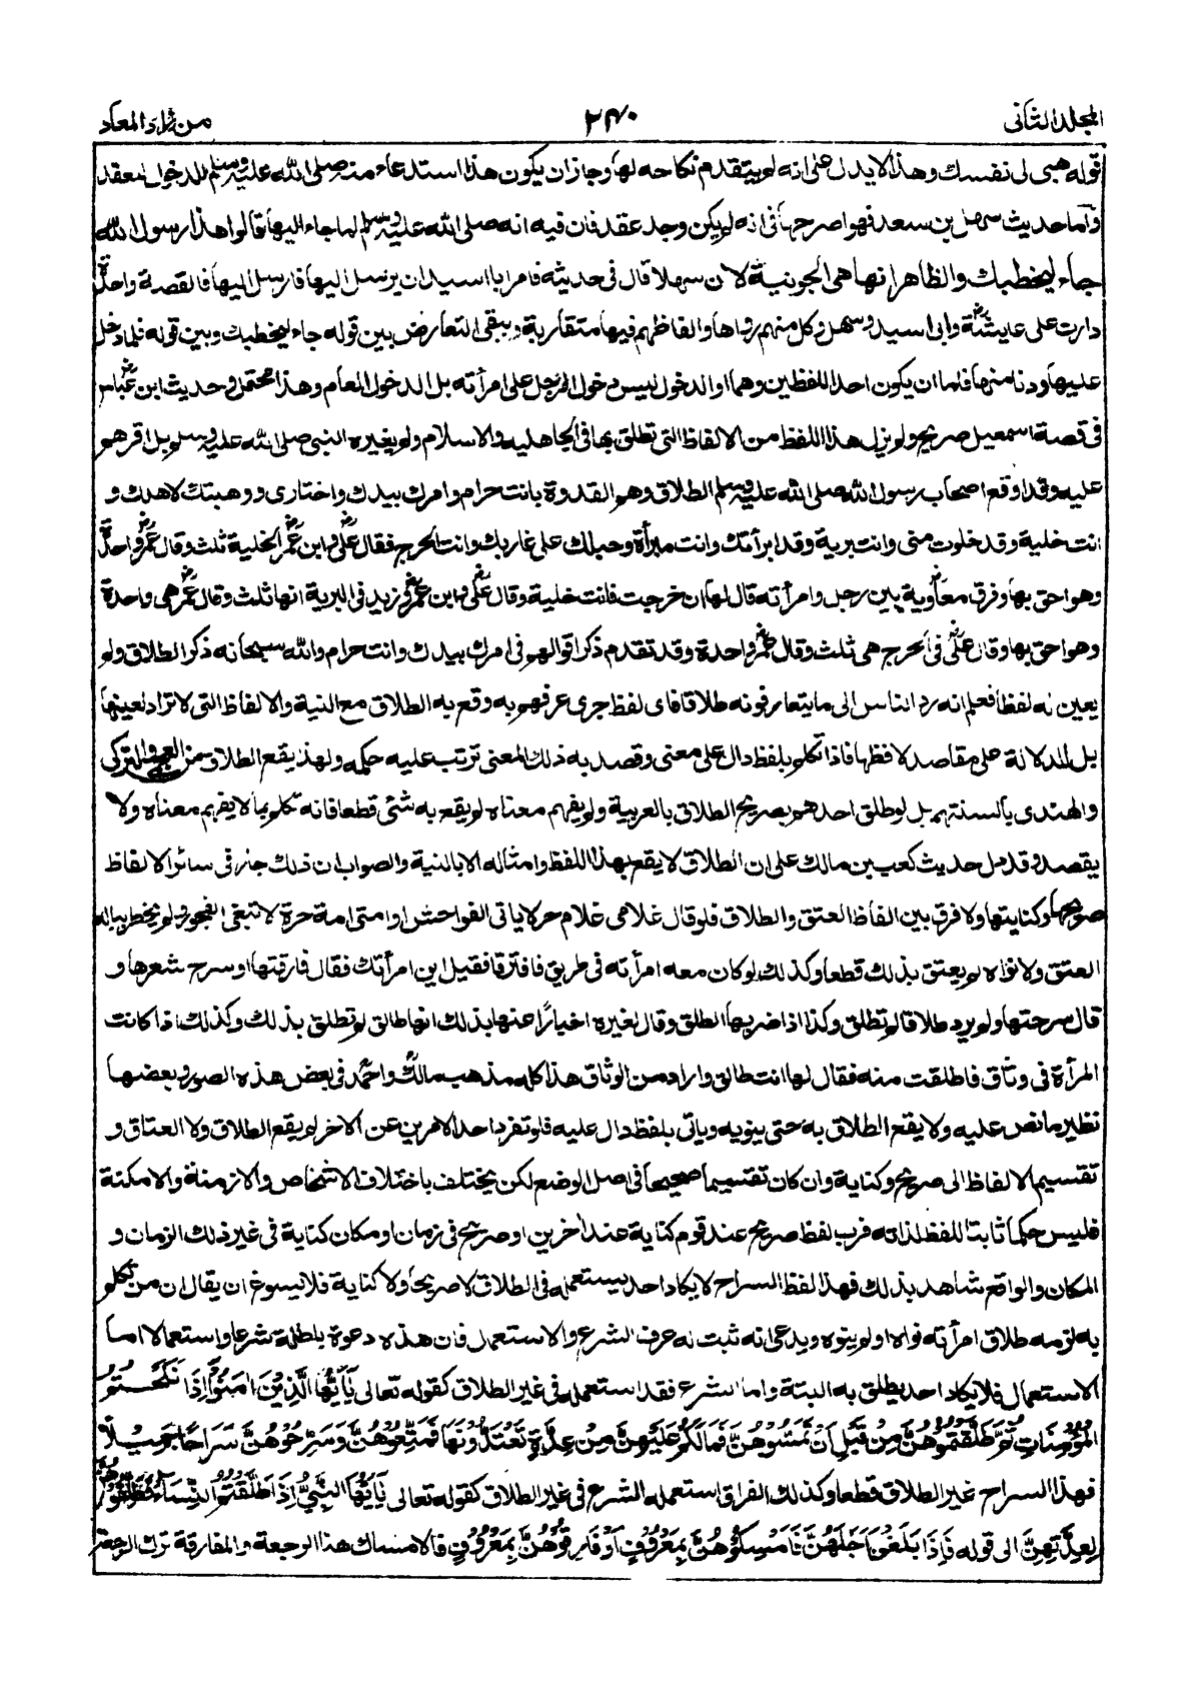 المجلد الثانى
٢٤٠
من زاد المعاد
قوله هبى لى نفسك وهذا لا يدل على انه لم يتقدم نكاحه لها وجاز ان يكون هذا استدعاء منه صلى الله عليه وسلم للدخول لا لعقد
وأما حديث سهل بن سعد فهو اصرحها فى انه لم يكن وجد عقد فان فيه انه صلى الله عليه وسلم لما جاء اليها قالوا هذا رسول الله
جاء ليخطبك والظاهر انها هى الجونية لان سهلا قال فى حديثه فامر ابا اسيد ان يرسل اليها فارسل اليها فالقصة واحدة
دارت على عايشة وابى اسيد وسهل وكل منهم رواها والفاظهم فيها متقاربة ويبقى التعارض بين قوله جاء ليخطبك وبين قوله فلما دخل
عليها ودنا منها فاما ان يكون احد اللفظين وهما او الدخول ليس دخول الرجل على امرأته بل الدخول العام وهذا محتمل وحديث ابن عباس
فى قصة اسمعيل صريح ولم يزل هذا اللفظ من الالفاظ التى تطلق بها فى الجاهلية والاسلام ولم يغيره النبى صلى الله عليه وسلم بل اقرهم
عليه وقد اوقع اصحاب رسول الله صلى الله عليه وسلم الطلاق وهم القدوة بانت حرام وامرك بيدك واختارى ووهبتك لاهلك و
انت خلية وقد خلوت منى وانت برية وقد ابرأتك وانت مبرأة وحبلك على غاربك وانت الحرج فقال على وابن عمر الخلية ثلث وقال عمر واحدة
وهو احق بها وفرق معاوية بين رجل وامرأته قال لها ان خرجت فانت خلية وقال على وابن عمر وزيد فى البرية انها ثلث وقال عمر هى واحدة
وهو احق بها وقال على فى الحرج هى ثلث وقال عمر واحدة وقد تقدم ذكر اقوالهم فى امرك بيدك وانت حرام والله سبحانه ذكر الطلاق ولم
يعين له لفظا فعلم انه رد الناس الى ما يتعارفونه طلاقا فاى لفظ جرى عرفهم به وقع به الطلاق مع النية والالفاظ التى لا تراد لعينها
بل للدلالة على مقاصد لافظها فاذا تكلم بلفظ دال على معنى وقصد به ذلك المعنى ترتب عليه حكمه ولهذا يقع الطلاق من العجمى والتركى
والهندى بألسنتهم بل لو طلق احدهم بصريح الطلاق بالعربية ولم يفهم معناه لم يقع به شئ قطعا فانه تكلم بما لا يفهم معناه ولا
يقصده وقد دل حديث كعب بن مالك على ان الطلاق لا يقع بهذا اللفظ وامثاله الا بالنية والصواب ان ذلك جار فى سائر الالفاظ
صريحها وكنايتها ولا فرق بين الفاظ العتق والطلاق فلو قال غلامى غلام حر لا ياتى الفواحش او امتى امة حرة لا تبغى الفجور ولم يخطر بباله
العتق ولا نواه لم يعتق بذلك قطعا وكذلك لو كان معه امرأته فى طريق فافترقا فقيل اين امرأتك فقال فارقتها او سرح شعرها و
قال سرحتها ولم يرد طلاقا لم تطلق وكذا اذا ضربها الطلق وقال لغيره اخبارًا عنها بذلك انها طالق لم تطلق بذلك وكذلك اذا كانت
المرأة فى وثاق فاطلقت منه فقال لها انت طالق واراد من الوثاق هذا كله مذهب مالك واحمد فى بعض هذه الصور وبعضها
نظير ما نص عليه ولا يقع الطلاق به حتى ينويه وياتى بلفظ دال عليه فلو تفرد احد الامرين عن الاخر لم يقع الطلاق ولا العتاق و
تقسيم الالفاظ الى صريح وكناية وان كان تقسيما صحيحا فى اصل الوضع لكن يختلف باختلاف الاشخاص والازمنة والامكنة
فليس حكما ثابتا للفظ لذاته فرب لفظ صريح عند قوم كناية عند اخرين او صريح فى زمان او مكان كناية فى غير ذلك الزمان و
المكان والواقع شاهد بذلك فهذا لفظ السراح لا يكاد احد يستعمله فى الطلاق لا صريحا ولا كناية فلا يسوغ ان يقال ان من تكلم
به لزمه طلاق امرأته نواه او لم ينوه ويدعى انه ثبت له عرف الشرع والاستعمال فان هذه دعوة باطلة شرعا واستعمالا اما
الاستعمال فلا يكاد احد يطلق به البتة واما الشرع فقد استعمله فى غير الطلاق كقوله تعالى يَاأَيُّهَا الَّذِيْنَ امَنُوْا اِذَا نَكَحْتُمُ
المُؤْمِنَاتِ ثُمَّ طَلَّقْتُمُوْهُنَّ مِنْ قَبْلِ اَنْ تَمَسُّوْهُنَّ فَمَا لَكُمْ عَلَيْهِنَّ مِنْ عِدَّةٍ تَعْتَدُّوْنَهَا فَمَتِّعُوْهُنَّ وَسَرِّحُوْهُنَّ سَرَاحًا جَمِيْلًا
فهذا السراح غير الطلاق قطعا وكذلك الفراق استعمله الشرع فى غير الطلاق كقوله تعالى يَاأَيُّهَا النَّبِيُّ اِذَا طَلَّقْتُمُ النِّسَاءَ فَطَلِّقُوْهُنَّ
لِعِدَّتِهِنَّ الى قوله فَاِذَا بَلَغْنَ اَجَلَهُنَّ فَاَمْسِكُوْهُنَّ بِمَعْرُوْفٍ اَوْ فَارِقُوْهُنَّ بِمَعْرُوْفٍ فالامساك هنا الرجعة والمفارقة ترك الرجعة